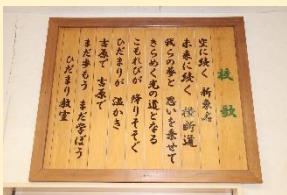 校歌
空に続く 新東名
未来に続く 横断道
我らの夢と 思いを乗せて
きらめく光の道となる
こもれびが 降りそそぐ
ひだまりが 温かき
吉原で 吉原で
まだ歩もう まだ学ぼう
ひだまり教室